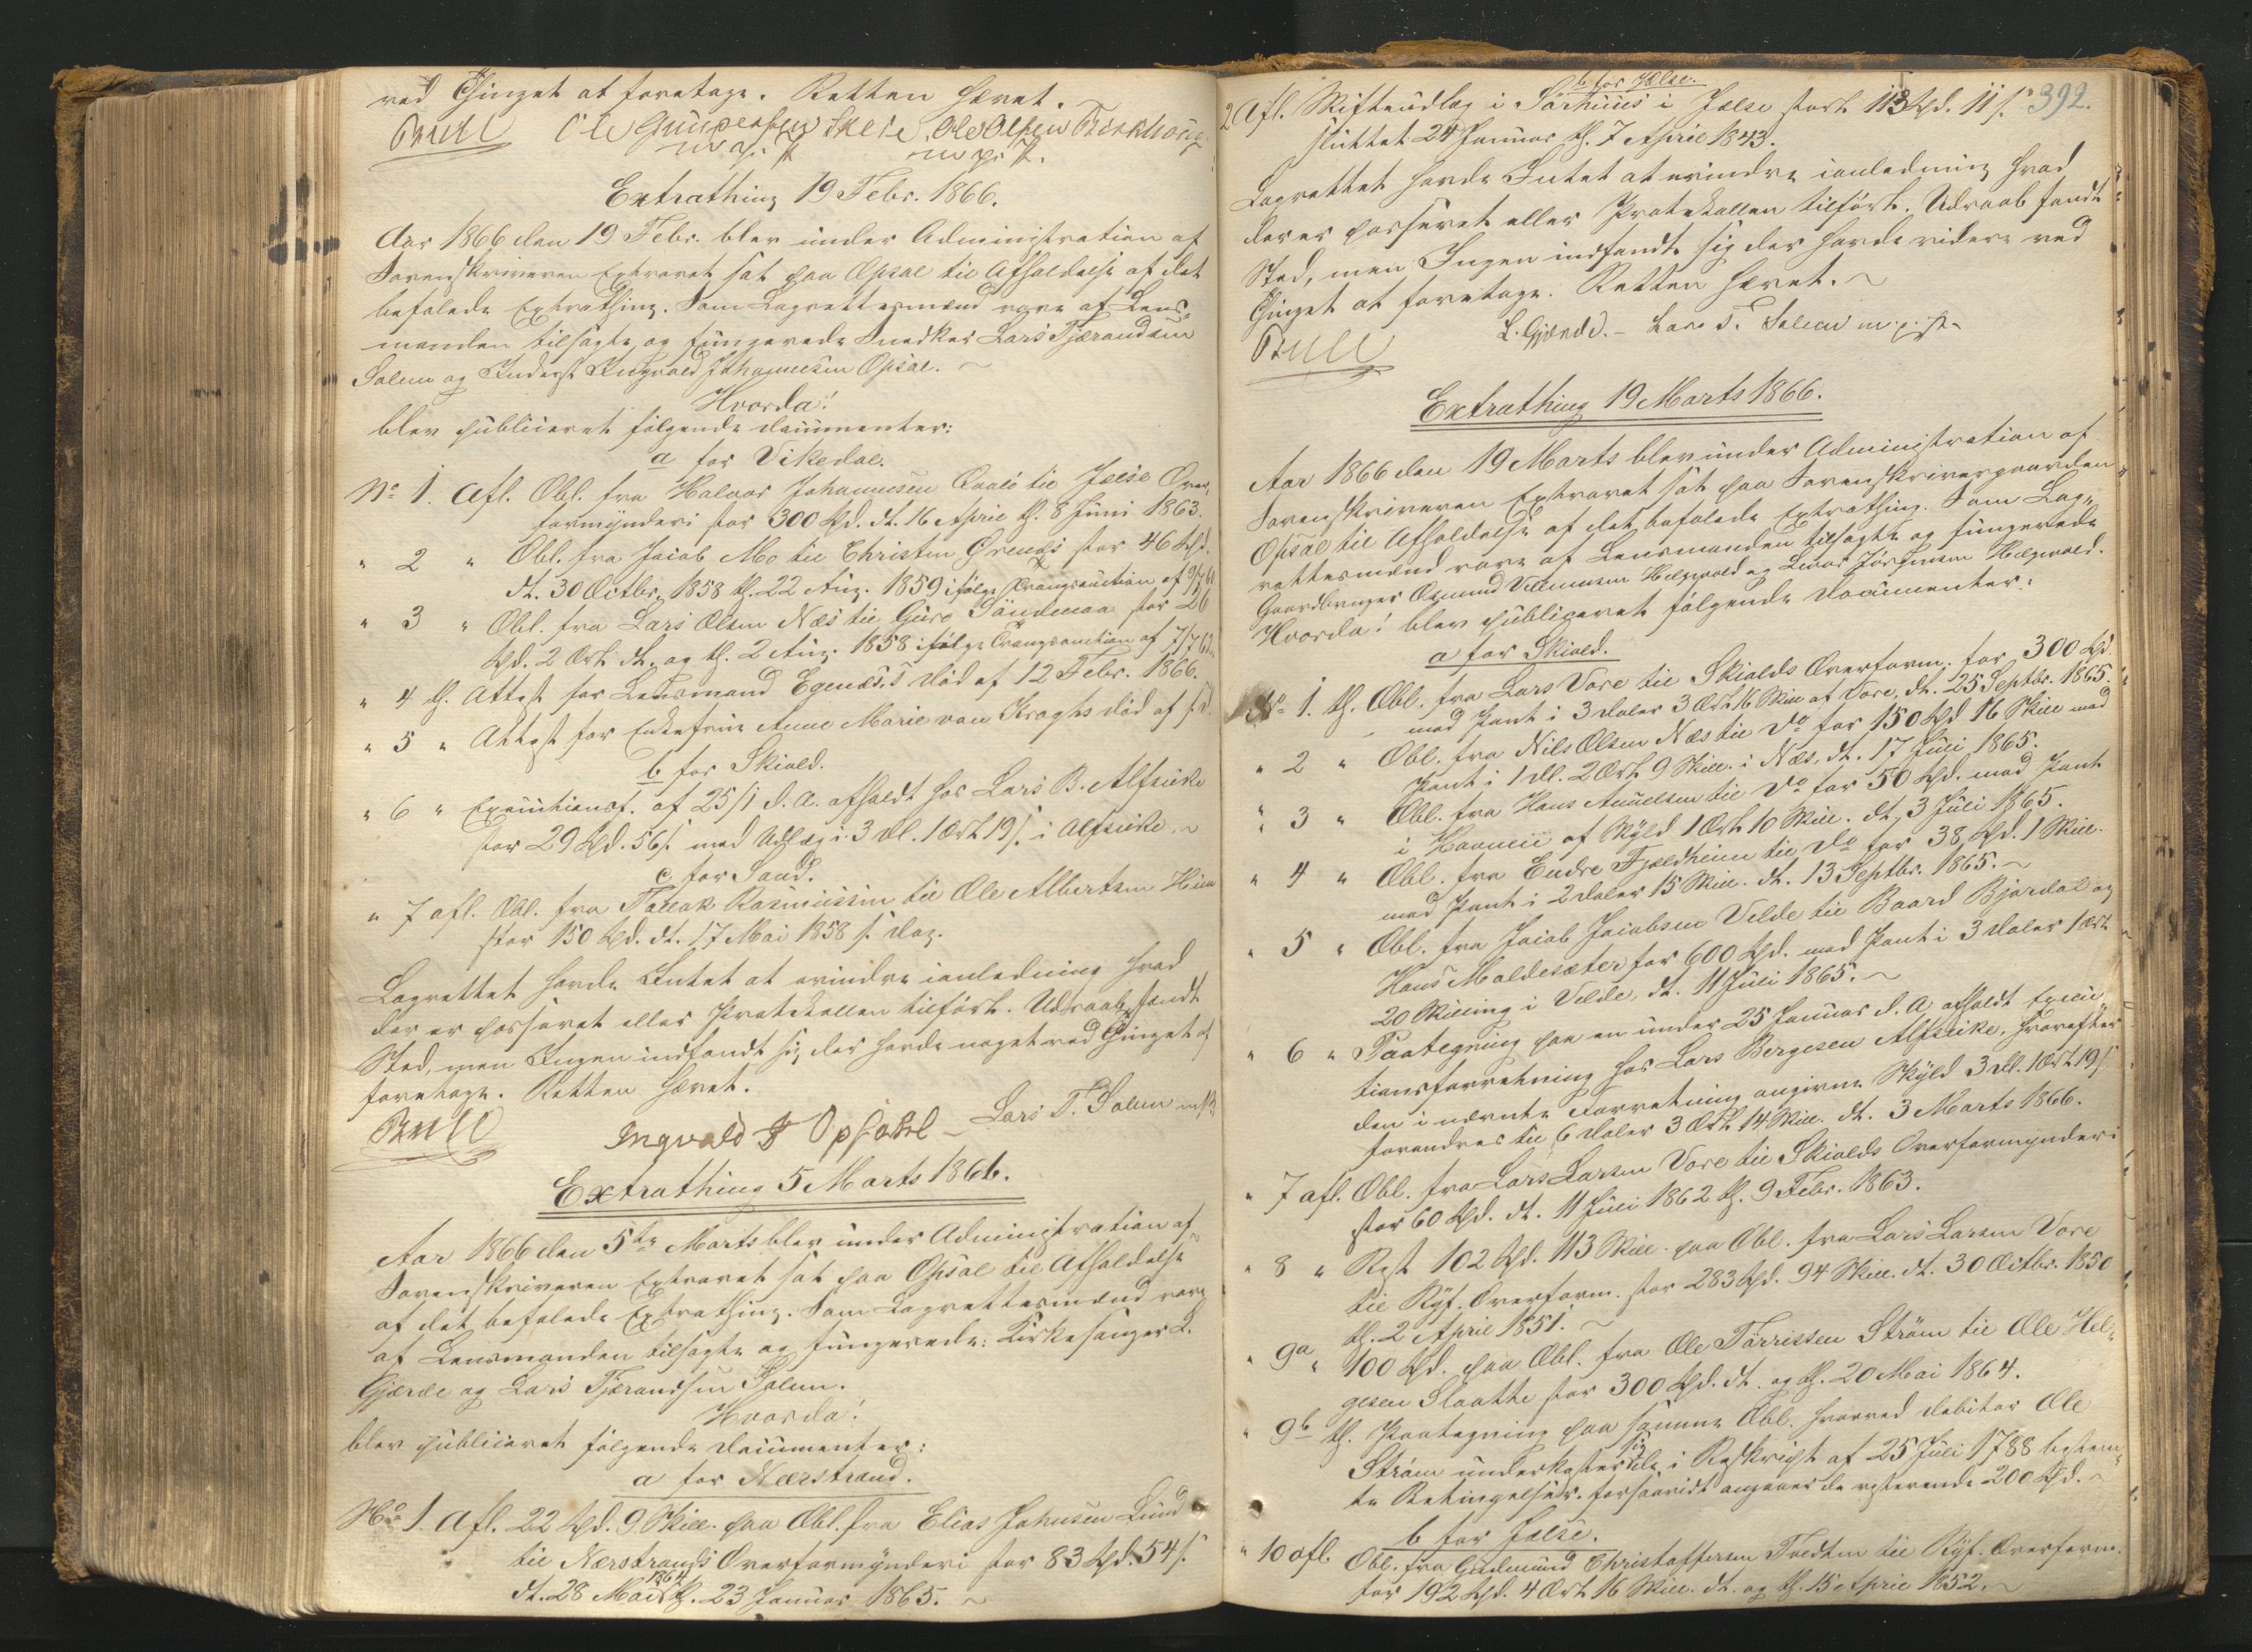 ved Thinget at foretage. Retten hævet.
Bull Ole Skeie, Ole Olsen Birkhoug
m. p. P. m. p. P.
Extrathing 19 Febr. 1866.
Aar 1866 den 19 Febr. blev under Administration af
Sorenskriveren Extraret sat paa Opsal til Afholdelse af det
befalede Extrathing. Som Lagrettesmænd vare af Lens-
manden tilsagte og fungerede Snedker Lars Tjærandsen
Solem og Inderst Ingvald Johannesen Opsal. ~
Hvorda!
blev publiceret følgende Documenter:
a for Vikedal.
No 1. Afl. Obl. fra Halvor Johannesen til Jælse Over-
formynderi stor 300 Spd. dt. 16 April th. 8 Juni 1863.
" 2 " Obl. fra Jacob Mo til Christen stor 46 Spd.
dt. 30 Octbr. 1858 th. 22 Aug. 1859 ifølge Tvangsauction af
" 3 " Obl. fra Lars Olsen Næs til Guro stor 26
Spd. 2 Ort dt. og th. 2 Aug. 1858 ifølge Tvangsauction af
" 4 th. Attest for Lensmand Egenæs's Död af 12 Febr. 1866.
" 5 " Attest for Enkefrue Anne Marie von Kroghs Död af s. D.
b for Skiold.
" 6 " Executionsf. af 25/1 d. A. afholdt hos Lars B. Alfseike
for 29 Spd. 56 s. med Udlæg i 3 Dl. 1 Ort 19 s. i Alfseike. ~
c for Sand.
" 7 afl. Obl. fra Tollak Rasmussen til Ole Albertsen
stor 150 Spd. dt. 17 Mai 1858 s. Dag.
Lagrettet havde Intet at erindre ianledning hvad
der er passeret eller Protokollen tilført. Udraab fandt
Sted, men Ingen indfandt sig der havde noget ved Thinget at
foretage. Retten hævet.
Bull Ingvald J Opsahl – Lars T. Solem
Extrathing 5 Marts 1866.
Aar 1866 den 5te Marts blev under Administration af
Sorenskriveren Extraret sat paa Opsal til Afholdelse
af det befalede Extrathing. Som Lagrettesmænd vare
af Lensmanden tilsagte og fungerede: Kirkesanger L.
Gjerde og Lars Tjærandsen Solem.
Hvorda!
blev publiceret følgende Documenter:
a for Nærstrand.
No 1. Afl. 22 Spd. 9 Skill. paa Obl. fra Elias Johnsen Lund
til Nærstrands Overformynderi stor 83 Spd. 54 s.
dt. 28 Mai 1864 th. 23 Januar 1865. ~
b for Jelse.
392.
2 Afl. Skifteudlæg i Sørhuus i Jelse stort 113 Spd. 11 s.
sluttet 24 Januar th. 7 April 1843.
Lagrettet havde Intet at erindre ianledning hvad
der er passeret eller Protokollen tilført. Udraab fandt
Sted, men Ingen indfandt sig der havde videre ved
Thinget at foretage. Retten hævet. ~
Bull L. Gjerde. – Lars T. Solem m. p. P.
Extrathing 19 Marts 1866.
Aar 1866 den 19 Marts blev under Administration af
Sorenskriveren Extraret sat paa Sorenskrivergaarden
Opsal til Afholdelse af det befalede Extrathing. Som Lag-
rettesmænd vare af Lensmanden tilsagte og fungerede
Gaardbruger Osmund og
Hvorda! blev publiceret følgende Documenter:
a for Skiold.
No 1. th. Obl. fra Lars Vore til Skiolds Overform. for 300 Spd.
med Pant i 3 Daler 3 Ort 16 Skill. af Vore, dt. 25 Septbr. 1865.
" 2 " Obl. fra Nils Olsen Næs til Do for 150 Spd 16 Skill med
Pant i 1 Dl. 2 Ort 9 Skill. i Næs, dt. 17 Juni 1865.
" 3 " Obl. fra Hans til Do for 50 Spd. med Pant
i af Skyld 1 Ort 10 Skill. dt. 3 Juli 1865.
" 4 " Obl. fra Endre Fjeldheim til Do for 38 Spd. 1 Skill.
med Pant i 2 Daler 15 Skill. dt. 13 Septbr. 1865. ~
" 5 " Obl. fra Jacob Jacobsen Velde til Baard Bjordal og
Hans Maldesæter for 600 Spd. med Pant i 3 Daler 1 Ort
20 Skilling i Velde, dt. 11 Juli 1865. ~
" 6 " Paategning paa en under 25 Januar d. A. afholdt Execu-
tionsforretning hos Lars Bergesen Alfseike, hvorefter
den i nævnte Forretning angivne Skyld 3 Dl. 1 Ort 19 s
forandres til 6 Daler 3 Ort 14 Skill. dt. 3 Marts 1866.
" 7 afl. Obl. fra Lars Larsen Vore til Skiolds Overformynderi
stor 60 Spd. dt. 11 Juli 1862 th. 9 Febr. 1863.
" 8 " Rest 102 Spd. 113 Skill. paa Obl. fra Lars Larsen Vore
til Ryf. Overform. stor 283 Spd. 94 Skill. dt. 30 Octbr. 1850
th. 2 April 1851. ~
" 9a " 100 Spd. paa Obl. fra Ole Tørrissen Strøm til Ole Hel-
gesen Slaatte stor 300 Spd. dt. og th. 20 Mai 1864.
" 9b th. Paategning paa samme Obl. hvorved Debitor Ole
Strøm underkaster sig de i Reskript af 25 Juli 1788 bestem-
te Betingelser, forsaavidt angaaer de resterende 200 Spd. ~
b for Jælse.
" 10 afl. Obl. fra Gudmund Christoffersen til Ryf. Overform.
for 192 Spd. 4 Ort 16 Skill. dt. og th. 15 April 1852. ~